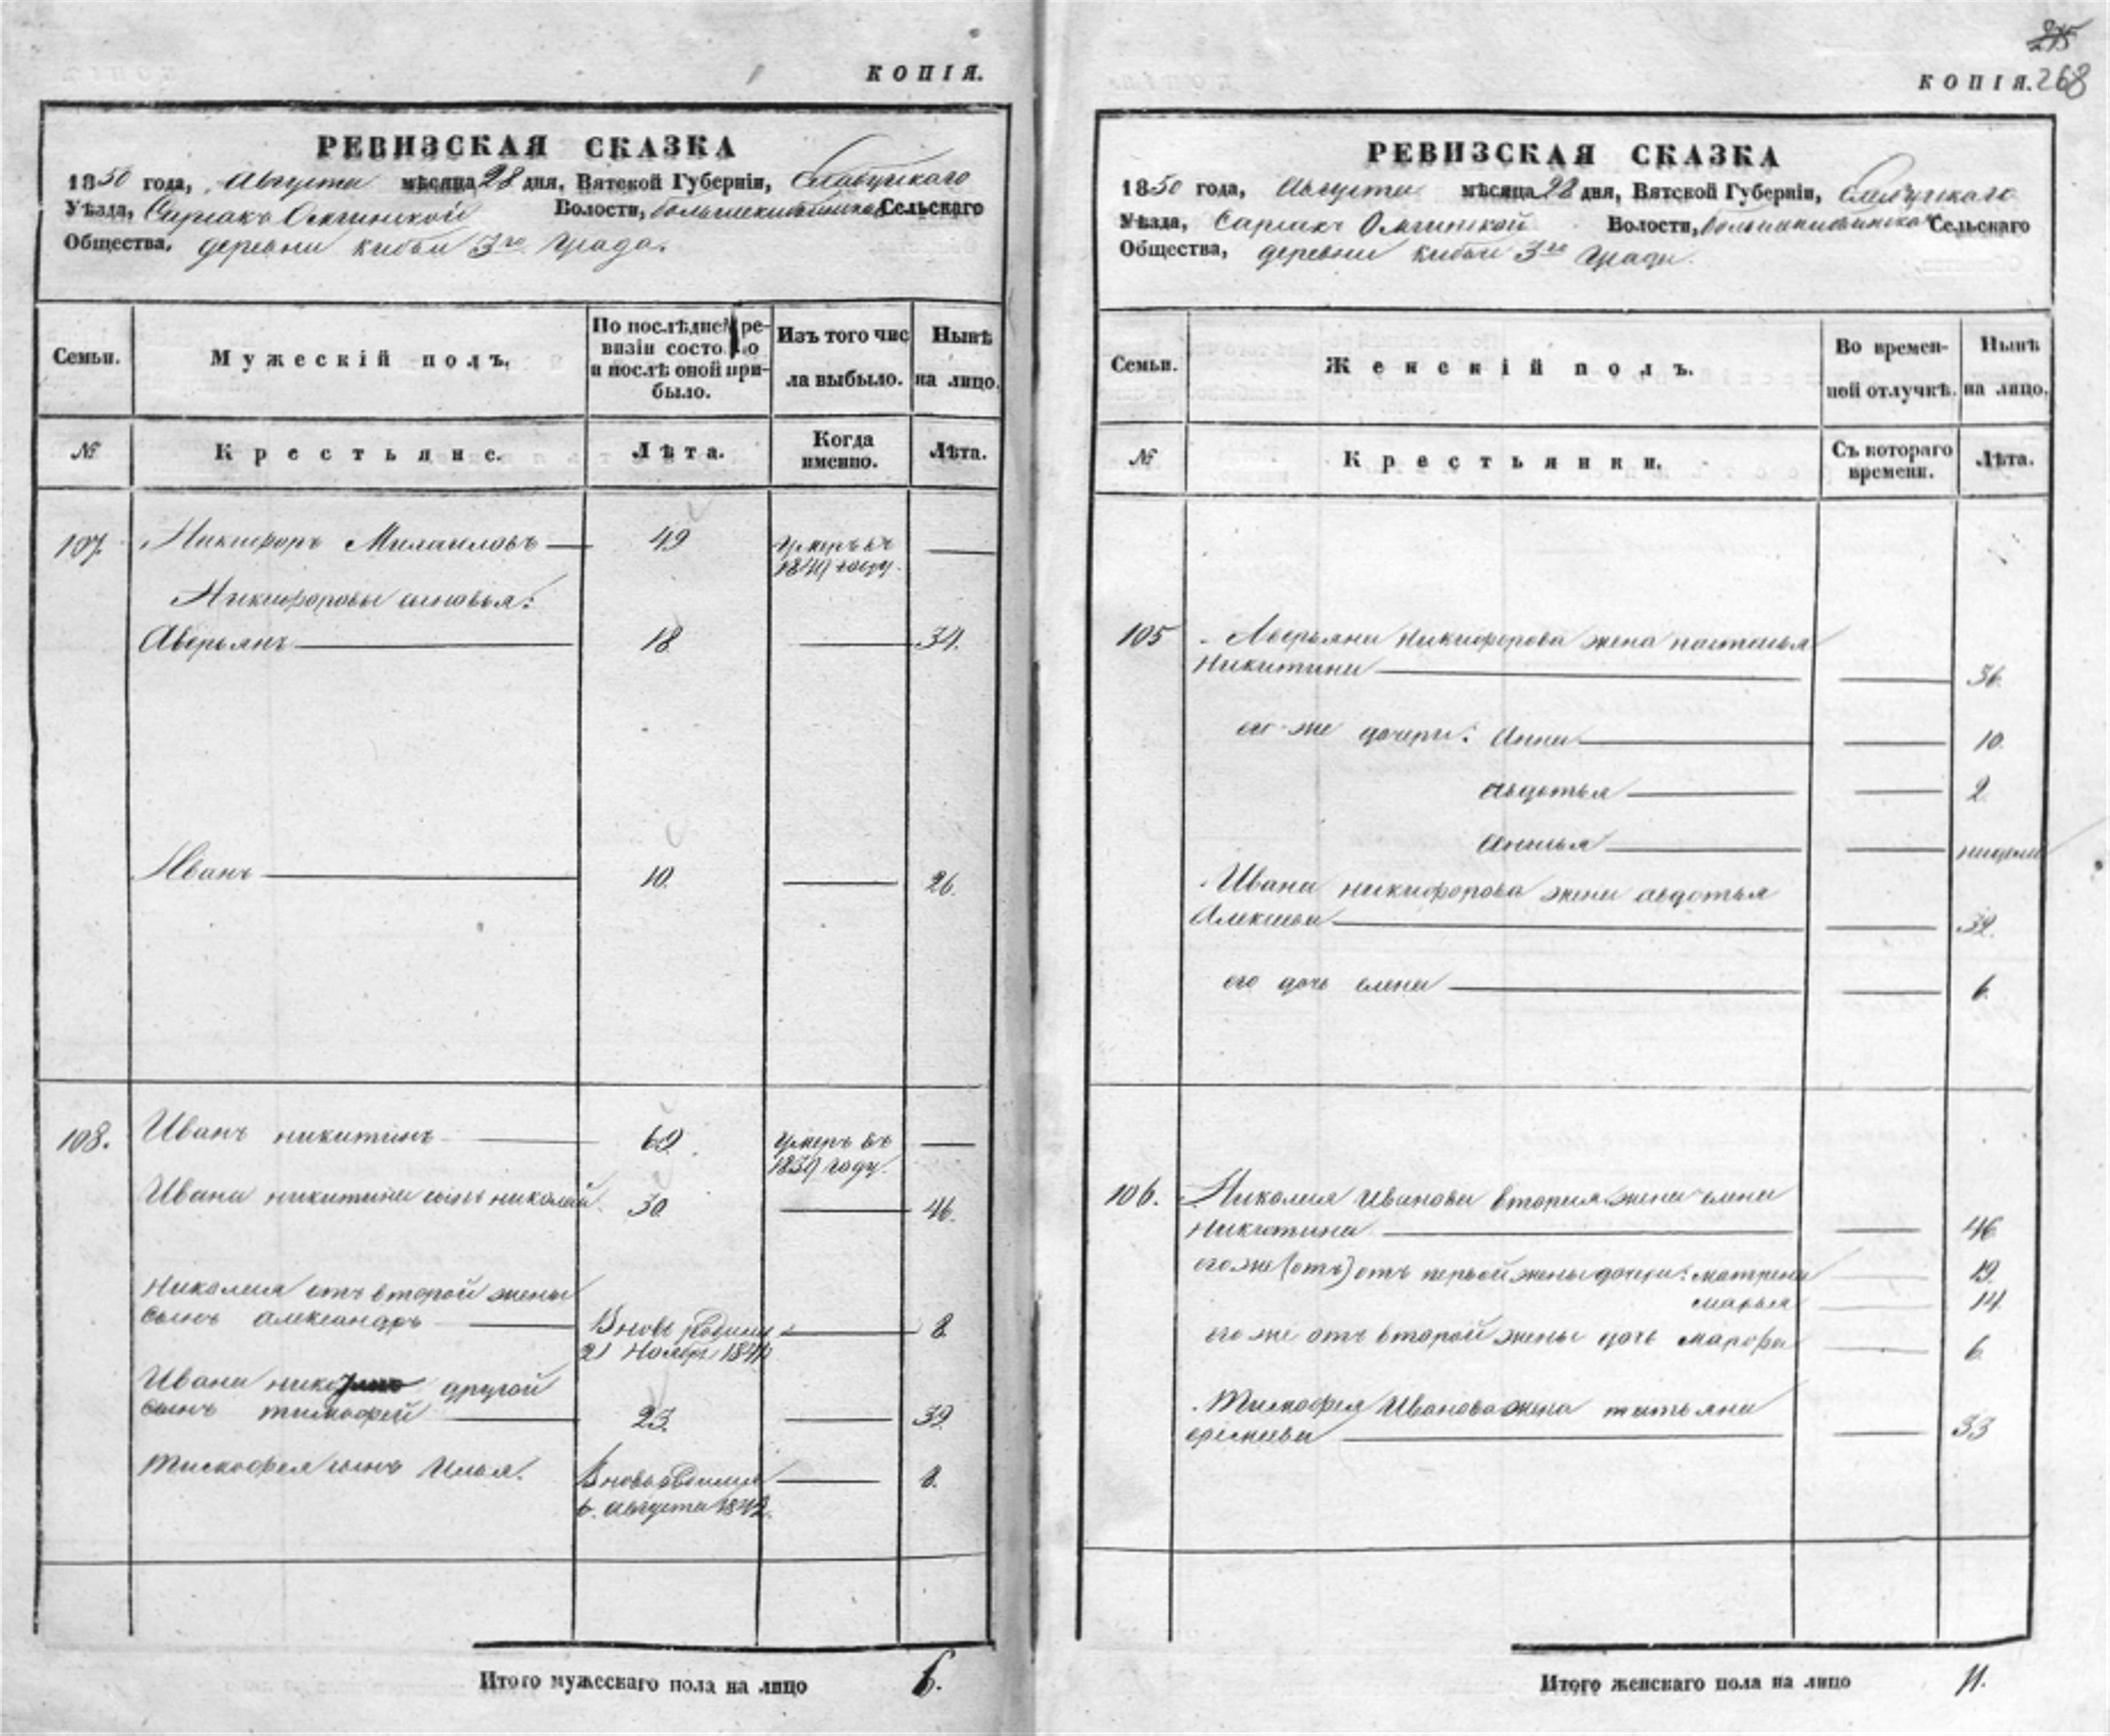 КОПІЯ.
РЕВИЗСКАЯ СКАЗКА
1850 года, Августа мѣсяца 28 дня, Вятской Губерніи, Елабужскаго
Уѣзда, Сарсакъ Омгинской Волости, большекибьинскаго Сельскаго
Общества, деревни кибьи 3го града.
Семьи.
Мужескій полъ.
По послѣдней ре-
визіи состояло
и послѣ оной при-
было.
Изъ того чис
ла выбыло.
Нынѣ
на лицо.
№
Крестьяне.
Лѣта.
Когда
именно.
Лѣта.
107. Никифоръ Михаиловъ 49 умеръ въ
1849 году.
Никифоровы сыновья:
Аверьянъ 18 34.
Иванъ 10. 26.
108. Иванъ никитинъ 69. умеръ въ
1839 году.
Ивана никитина сынъ николай. 30. 46.
Николая отъ второй жены
сынъ александръ Вновь родился 8.
21 Ноября
Ивана другой
сынъ тимофей 23. 39.
Тимофея сынъ Илья. Вновь родился 8.
6. августа 1842.
Итого мужескаго пола на лицо 6.
215
КОПІЯ. 268
РЕВИЗСКАЯ СКАЗКА
1850 года, Августа мѣсяца 28 дня, Вятской Губерніи, Елабужскаго
Уѣзда, Сарсакъ Омгинской Волости, большекибьинскаго Сельскаго
Общества, деревни кибьи 3го града.
Семьи.
Женскій полъ.
Во времен-
ной отлучкѣ.
Нынѣ
на лицо.
№
Крестьянки.
Съ котораго
времени.
Лѣта.
105 Аверьяна никифорова жена настасья
никитина 36.
его-же дочери: Анна 10.
авдотья 2.
недели
Ивана никифорова жена авдотья
Алексеева 32.
его дочь елена 6.
106. Николая Иванова вторая жена елена
никитина 46
егоже (отъ) отъ первой жены дочери: матрена 19.
марья 14.
его же отъ второй жены дочь марфа 6.
Тимофея Иванова жена татьяна
33
Итого женскаго пола на лицо 11.